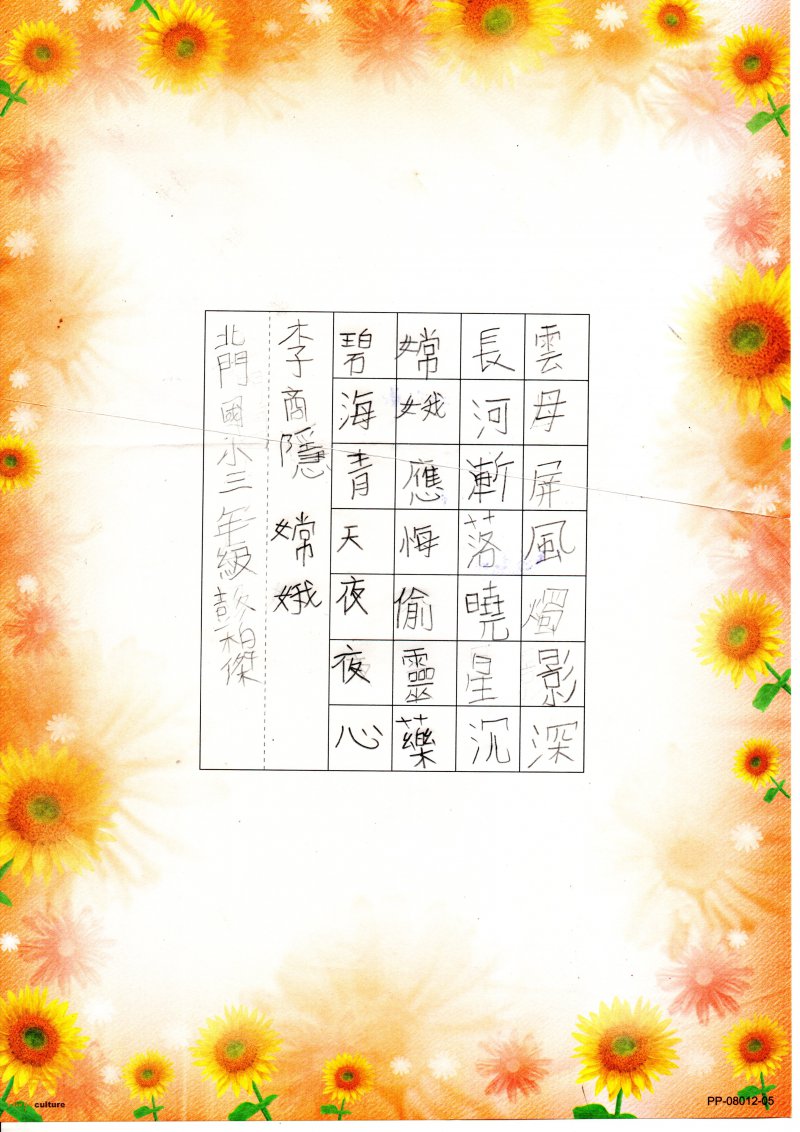 雲母屏風燭影深
長河漸落曉星沉
嫦娥應悔偷靈藥
碧海青天夜夜心
李商隱 嫦娥
北門國小三年級彭柏傑
culture
PP-08012-05